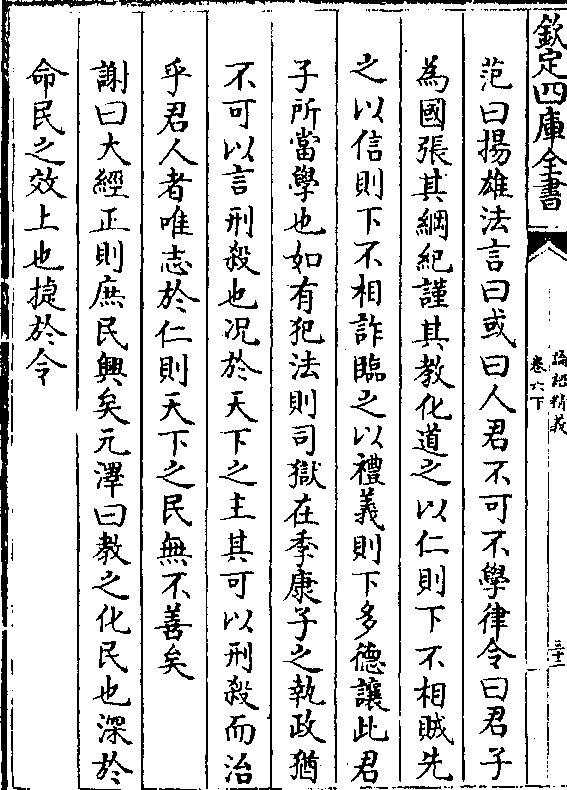 欽定四庫全書
論語精義
卷六下
三十二
范曰揚雄法言曰或曰人君不可不學律令曰君子
為國張其綱紀謹其教化道之以仁則下不相賊先
之以信則下不相詐臨之以禮義則下多德讓此君
子所當學也如有犯法則司獄在季康子之執政猶
不可以言刑殺也况於天下之主其可以刑殺而治
乎君人者唯志於仁則天下之民無不善矣
謝曰大經正則庶民興矣元澤曰教之化民也深於
命民之效上也捷於令